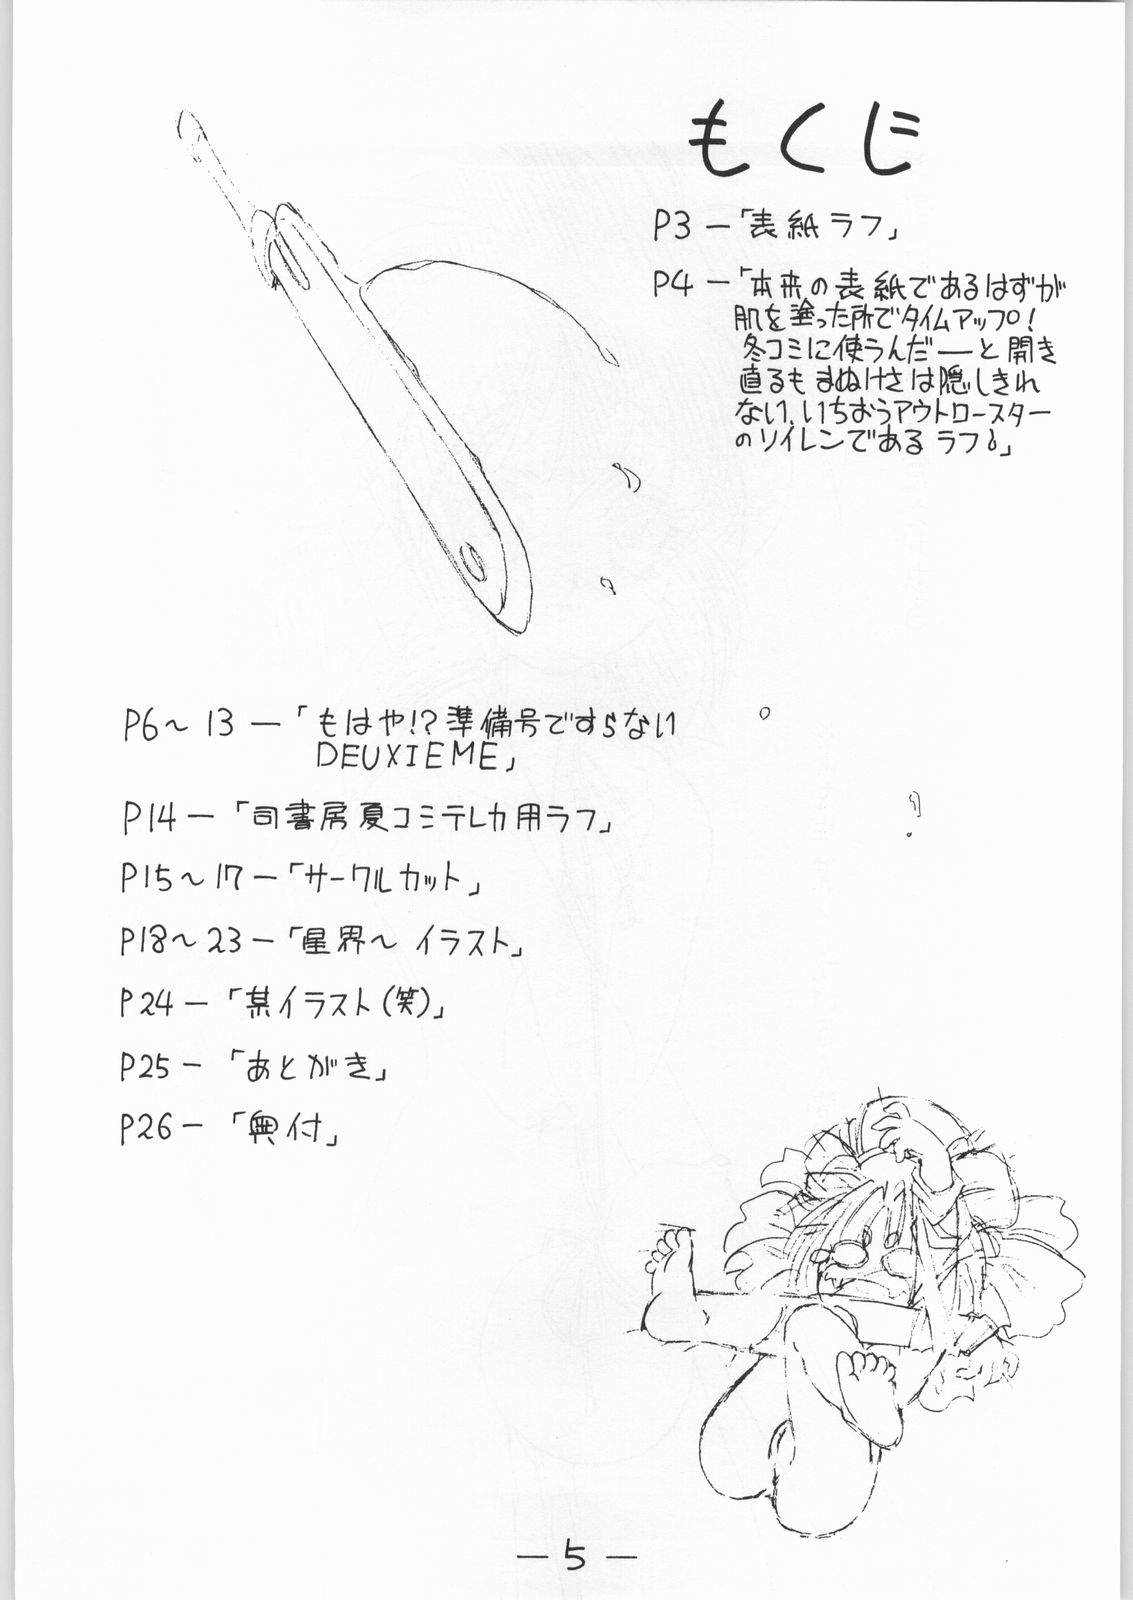 もくじ
P3－「表紙ラフ」
P4－「本来の表紙であるはずが
肌を塗った所でタイムアップ！
冬コミに使うんだ――と開き
直るもまぬけさは隠しきれ
ない、いちおうアウトロースター
のソイレンであるラフ。」
P6〜13－「もはや!?準備号ですらない
DEUXIEME」
P14－「司書房夏コミテレカ用ラフ」
P15〜17－「サークルカット」
P18〜23－「星界〜イラスト」
P24－「某イラスト(笑)」
P25－「あとがき」
P26－「奥付」
－5－